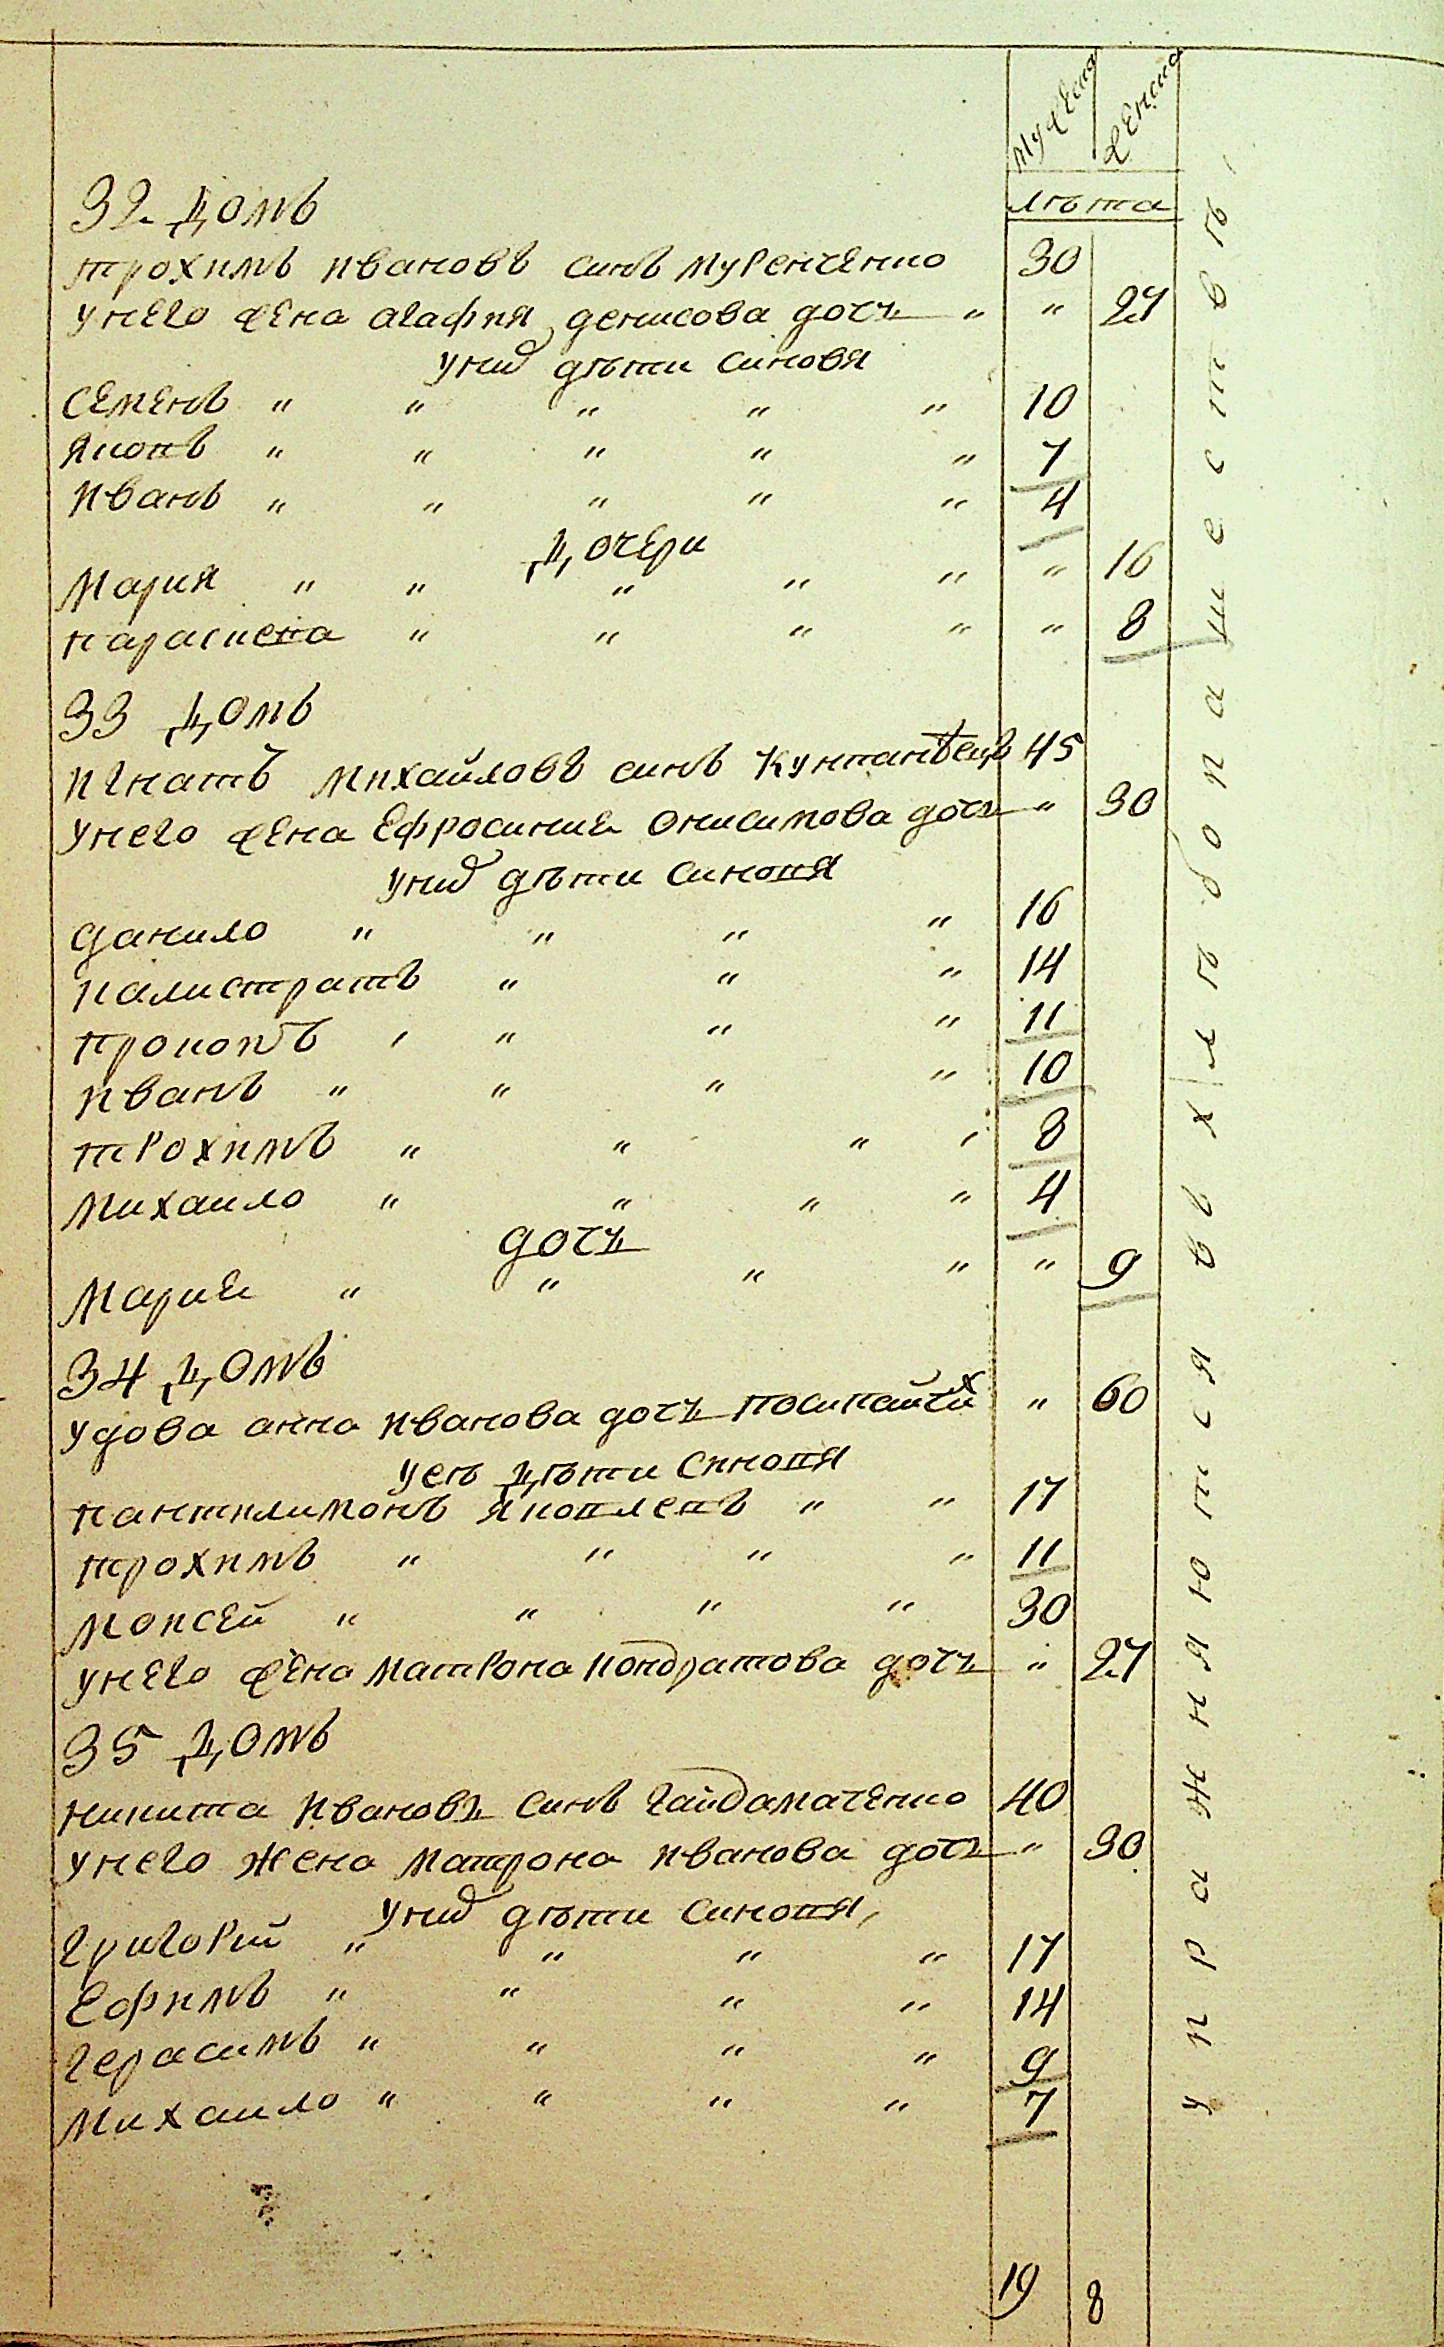 Мужеска Женска
лѣта
32 Домъ
трохимъ ивановъ синъ муренченко 30
унего жена агафия денисова дочъ " " 27
унихъ дѣти синовя
семенъ " " " " " 10
яковъ " " " " " 7
иванъ " " " " " 4
Дочери
Мария " " " " " " 16
параскева " " " " " 8
33 Домъ
игнатъ михайловъ синъ Кунтанъецъ 45
унего жена Ефросиние онисимова дочъ " 30
унихъ дѣти синовя
данило " " " " 16
калистратъ " " " 14
прокопъ " " " " 11
иванъ " " " " 10
трохимъ " " " " 8
михаило " " " " 4
дочъ
Марие " " " " " 9
34 Домъ
удова анна иванова дочъ " 60
уеѣ Дѣти синовя
пантилимонъ яковлевъ " " 17
трохимъ " " " " 11
Моисей " " " " 30
унего жена матрона кондратова дочъ " 27
35 Домъ
никита ивановъ синъ гайдамаченко 40
унего жена матрона иванова дочъ " 30
унихъ дѣти синовя,
григорий " " " " 17
Ефимъ " " " " 14
герасимъ " " " " 9
михаило " " " " 7
19 8
упражняются вв хлѣбопашествѣ